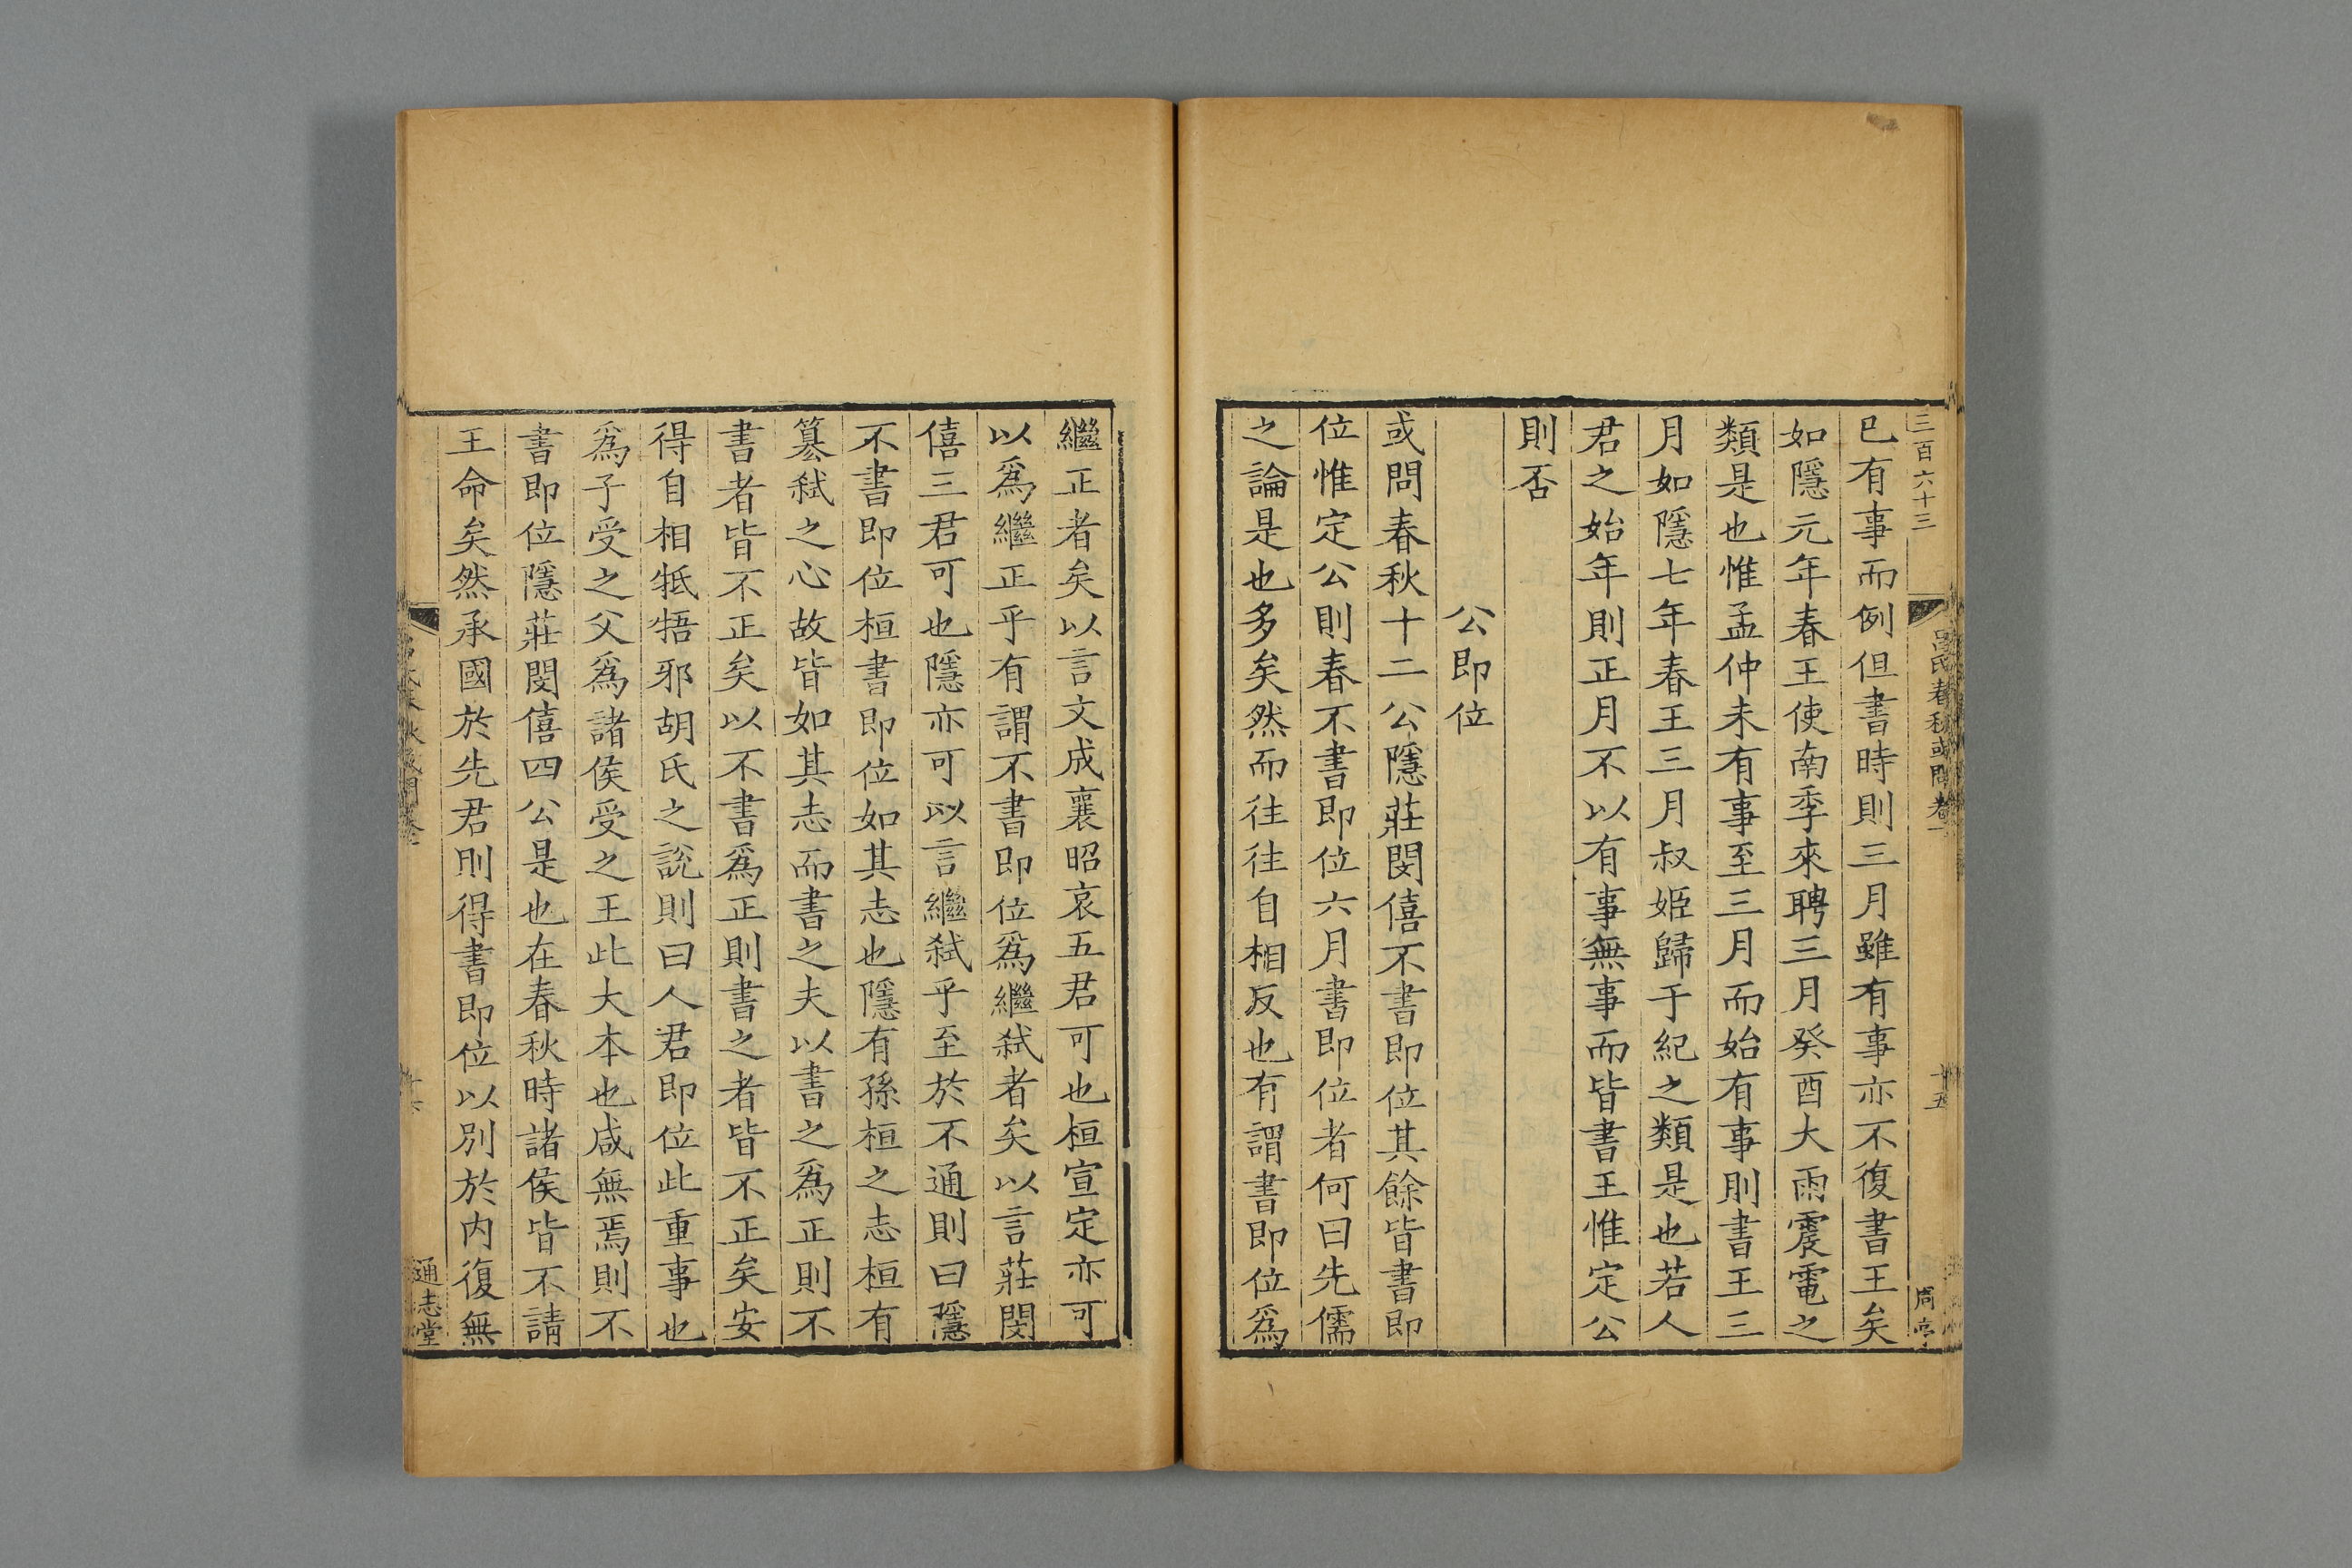 三百六十三
呂氏春秋或問卷一
十五
周亭
已有事而例但書時則三月雖有事亦不復書王矣
如隱元年春王使南季來聘三月癸酉大雨震電之
類是也惟孟仲未有事至三月而始有事則書王三
月如隱七年春王三月叔姬歸于紀之類是也若人
君之始年則正月不以有事無事而皆書王惟定公
則否
公即位
或問春秋十二公隱莊閔僖不書即位其餘皆書即
位惟定公則春不書即位六月書即位者何曰先儒
之論是也多矣然而往往自相反也有謂書即位為
繼正者矣以言文成襄昭哀五君可也桓宣定亦可
以為繼正乎有謂不書即位為繼弒者矣以言莊閔
僖三君可也隱亦可以言繼弒乎至於不通則曰隱
不書即位桓書即位如其志也隱有孫桓之志桓有
篡弒之心故皆如其志而書之夫以書之為正則不
書者皆不正矣以不書為正則書之者皆不正矣安
得自相牴牾邪胡氏之說則曰人君即位此重事也
為子受之父為諸侯受之王此大本也咸無焉則不
書即位隱莊閔僖四公是也在春秋時諸侯皆不請
王命矣然承國於先君則得書即位以別於內復無
通志堂